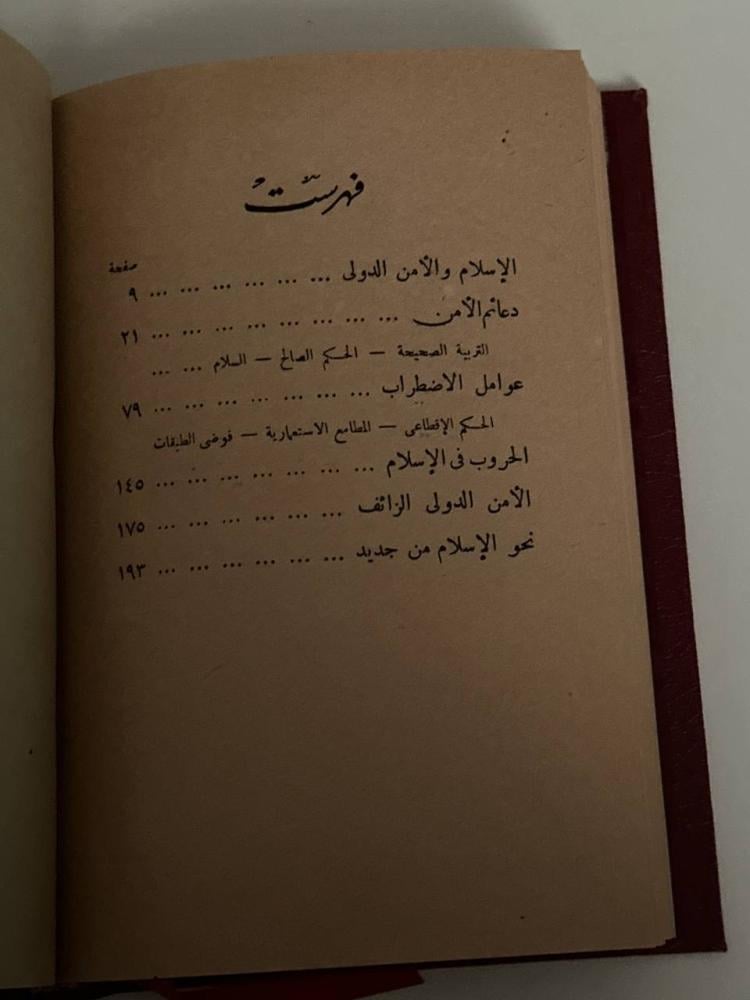 فهرست
صفحة
الإسلام والأمن الدولى ... ... ... ... ... ... ٩
دعائم الأمن ... ... ... ... ... ... ... ... ٢١
التربية الصحيحة — الحكم الصالح — السلام ... ...
عوامل الاضطراب ... ... ... ... ... ... ... ٧٩
الحكم الإقطاعى — المطامع الاستعمارية — فوضى الطبقات
الحروب فى الإسلام ... ... ... ... ... ... ... ١٤٥
الأمن الدولى الزائف ... ... ... ... ... ... ١٧٥
نحو الإسلام من جديد ... ... ... ... ... ... ١٩٣